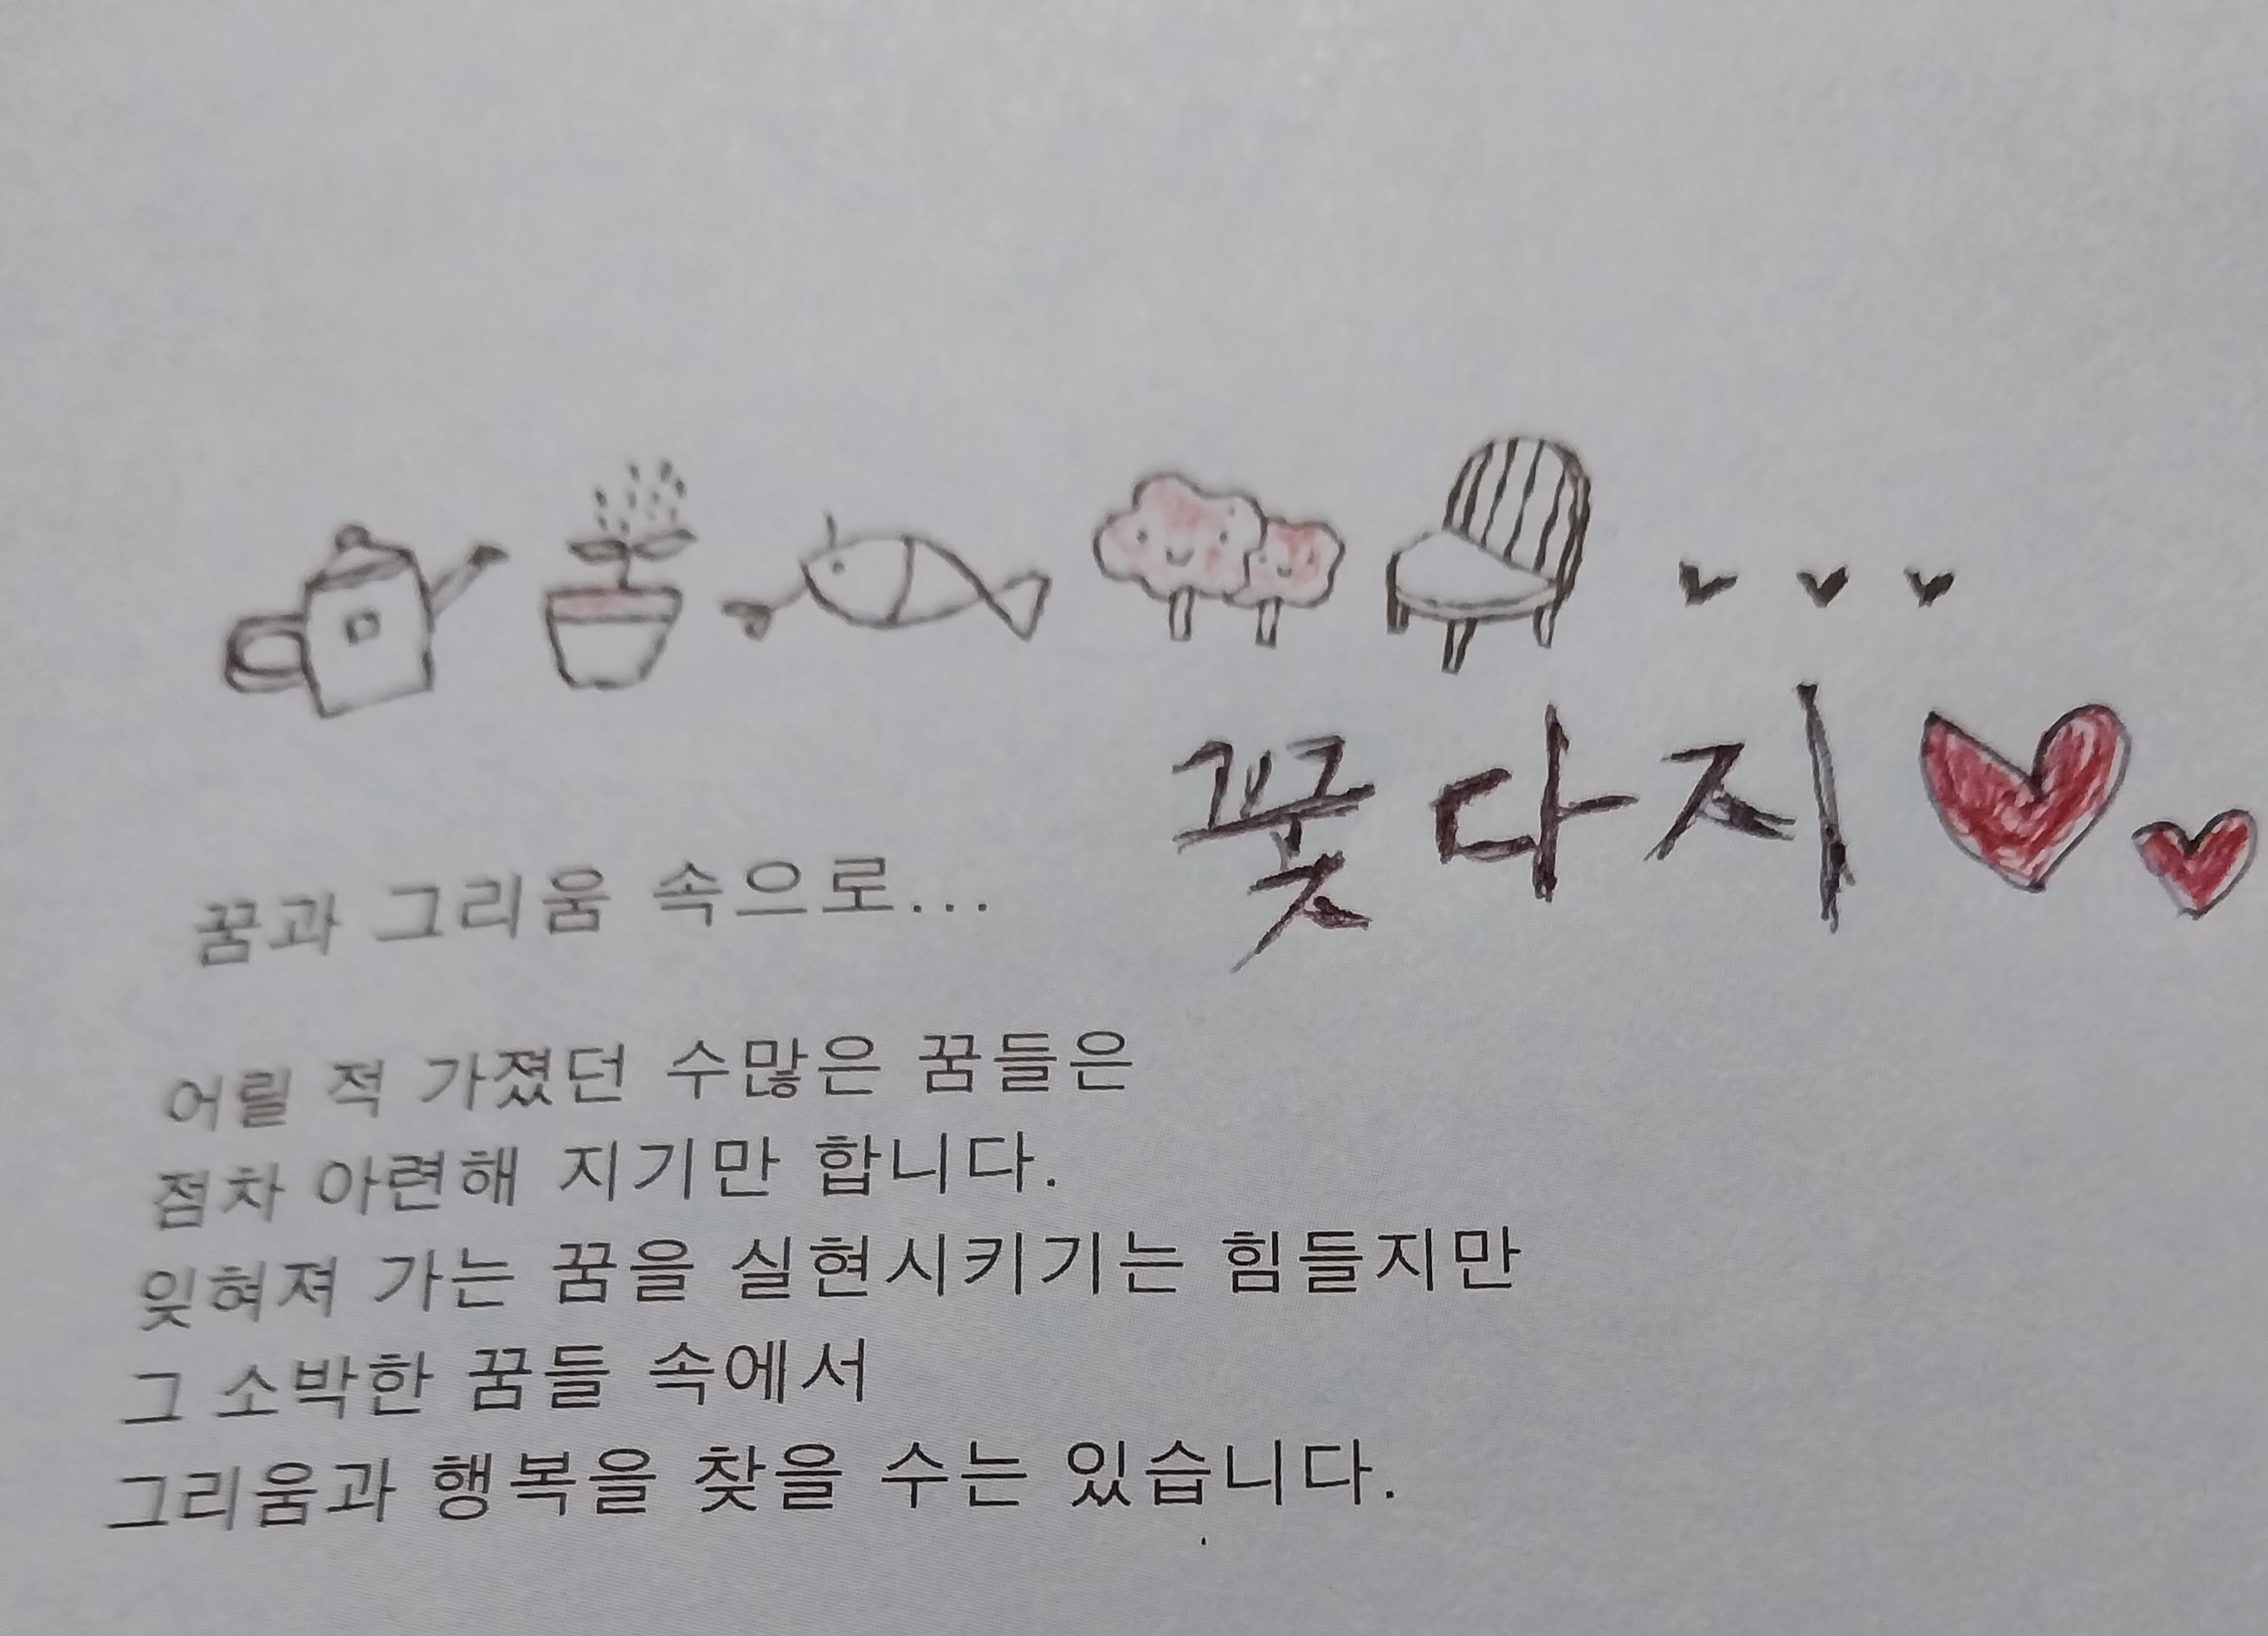 꽃다지
꿈과 그리움 속으로...
어릴 적 가졌던 수많은 꿈들은
점차 아련해 지기만 합니다.
잊혀져 가는 꿈을 실현시키기는 힘들지만
그 소박한 꿈들 속에서
그리움과 행복을 찾을 수는 있습니다.